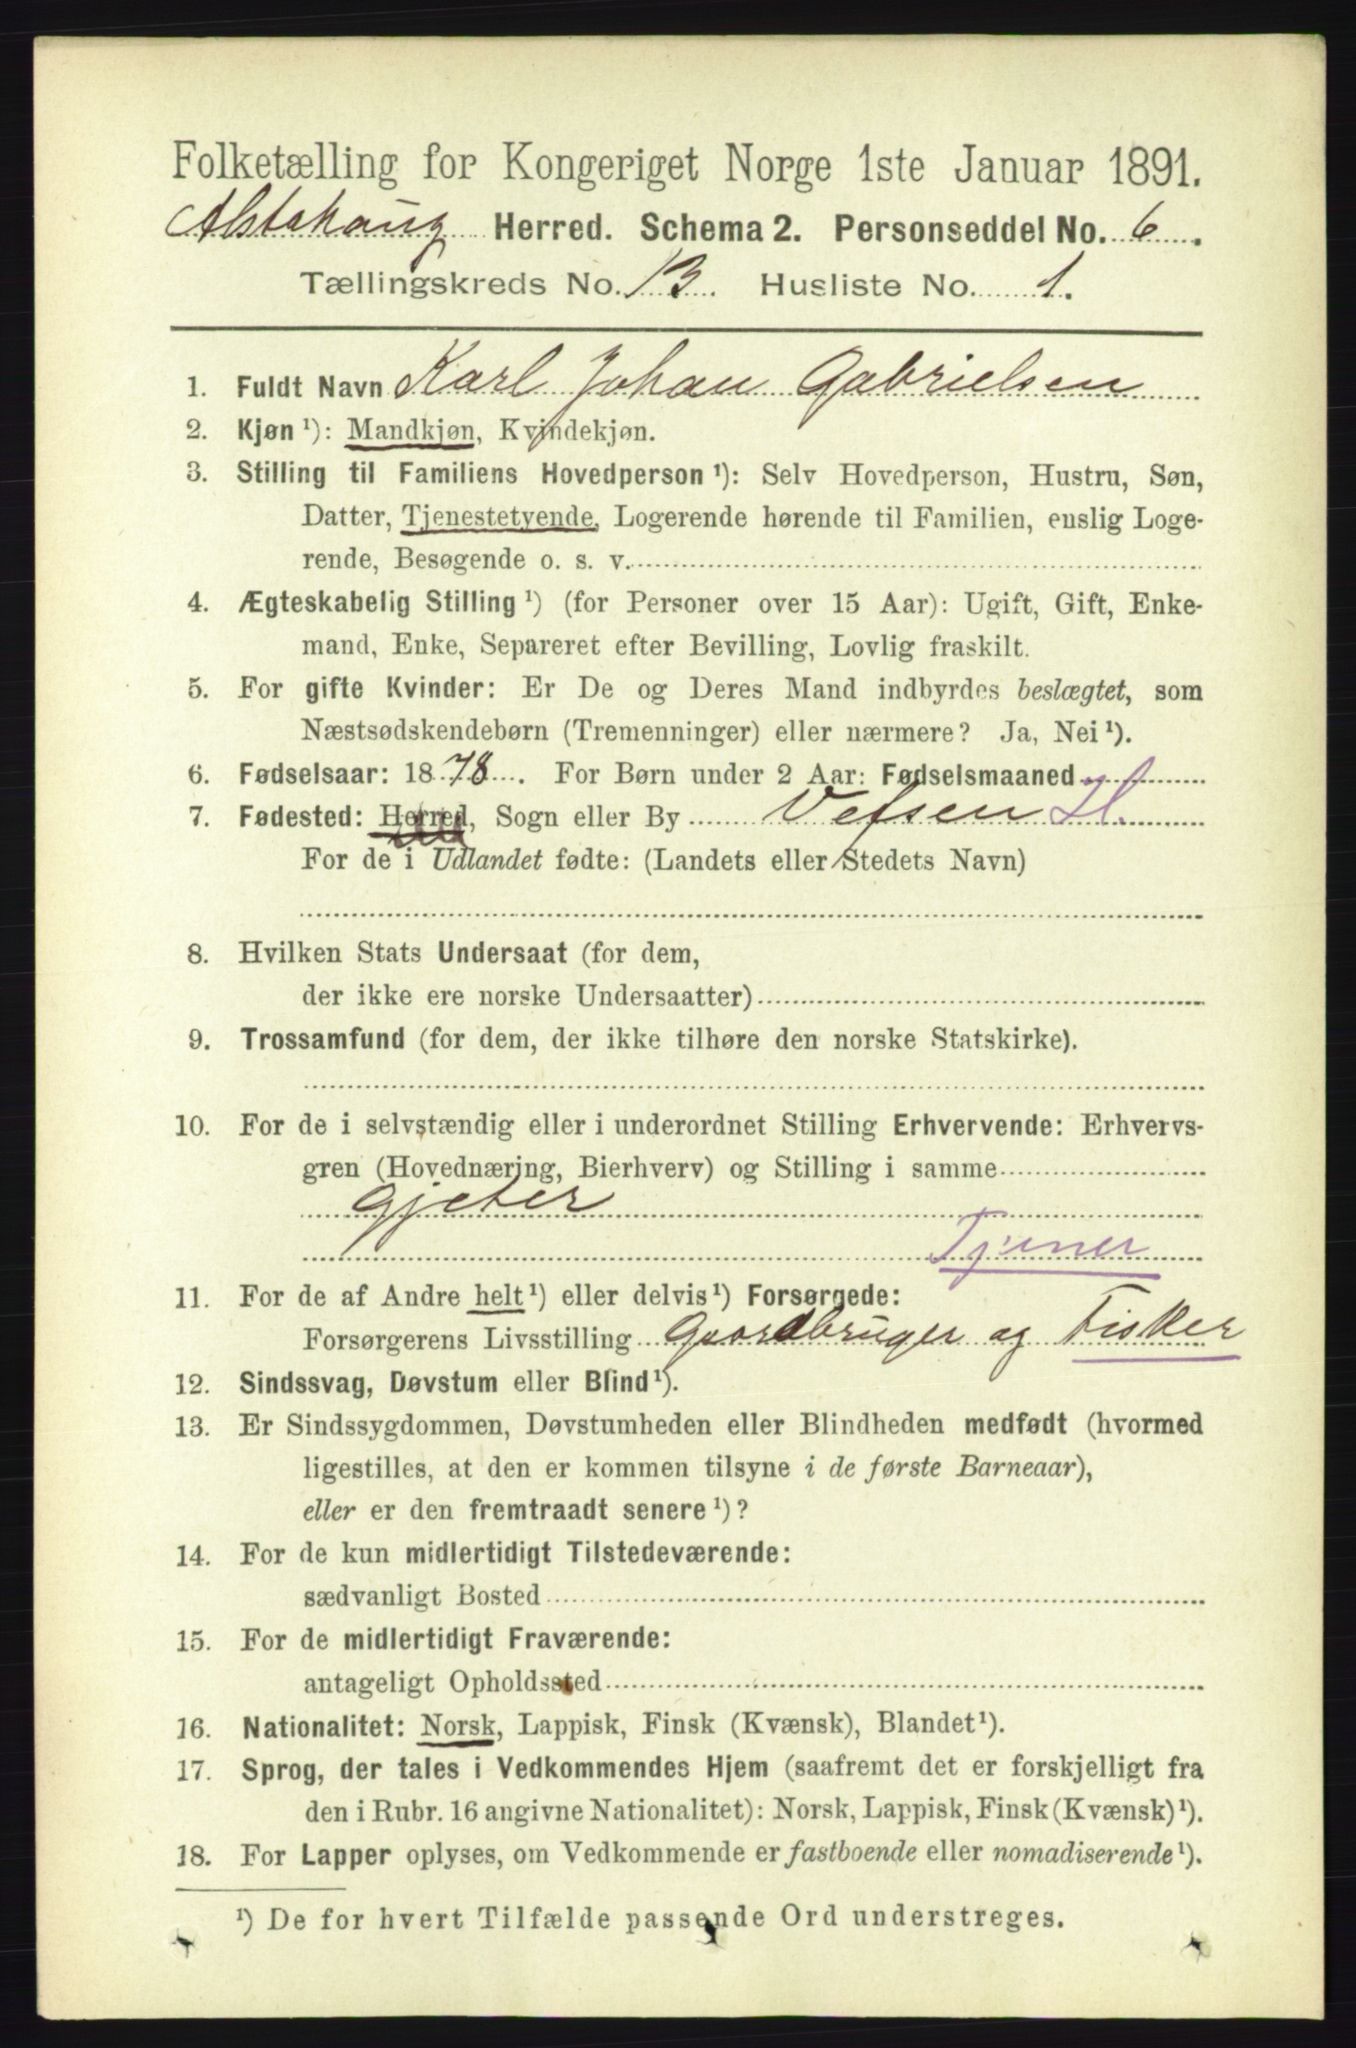 Folketælling for Kongeriget Norge 1ste Januar 1891.
Alstahaug Herred. Schema 2. Personseddel No. 6.
Tællingskreds No. 13. Husliste No. 1.
1. Fuldt Navn Karl Johan Gabrielsen
2. Kjøn ¹): Mandkjøn, Kvindekjøn.
3. Stilling til Familiens Hovedperson ¹): Selv Hovedperson, Hustru, Søn,
Datter, Tjenestetyende, Logerende hørende til Familien, enslig Loge-
rende, Besøgende o. s. v.
4. Ægteskabelig Stilling ¹) (for Personer over 15 Aar): Ugift, Gift, Enke-
mand, Enke, Separeret efter Bevilling, Lovlig fraskilt.
5. For gifte Kvinder: Er De og Deres Mand indbyrdes beslægtet, som
Næstsødskendebørn (Tremenninger) eller nærmere? Ja, Nei ¹).
6. Fødselsaar: 1878. For Børn under 2 Aar: Fødselsmaaned
7. Fødested: Herred, Sogn eller By Vefsen H.
For de i Udlandet fødte: (Landets eller Stedets Navn)
8. Hvilken Stats Undersaat (for dem,
der ikke ere norske Undersaatter)
9. Trossamfund (for dem, der ikke tilhøre den norske Statskirke).
10. For de i selvstændig eller i underordnet Stilling Erhvervende: Erhvervs-
gren (Hovednæring, Bierhverv) og Stilling i samme
Gjeter
Tjener
11. For de af Andre helt ¹) eller delvis ¹) Forsørgede:
Forsørgerens Livsstilling Gaardbruger og Fisker
12. Sindssvag, Døvstum eller Blind ¹).
13. Er Sindssygdommen, Døvstumheden eller Blindheden medfødt (hvormed
ligestilles, at den er kommen tilsyne i de første Barneaar),
eller er den fremtraadt senere ¹)?
14. For de kun midlertidigt Tilstedeværende:
sædvanligt Bosted
15. For de midlertidigt Fraværende:
antageligt Opholdssted
16. Nationalitet: Norsk, Lappisk, Finsk (Kvænsk), Blandet ¹).
17. Sprog, der tales i Vedkommendes Hjem (saafremt det er forskjelligt fra
den i Rubr. 16 angivne Nationalitet): Norsk, Lappisk, Finsk (Kvænsk) ¹).
18. For Lapper oplyses, om Vedkommende er fastboende eller nomadiserende ¹).
¹) De for hvert Tilfælde passende Ord understreges.